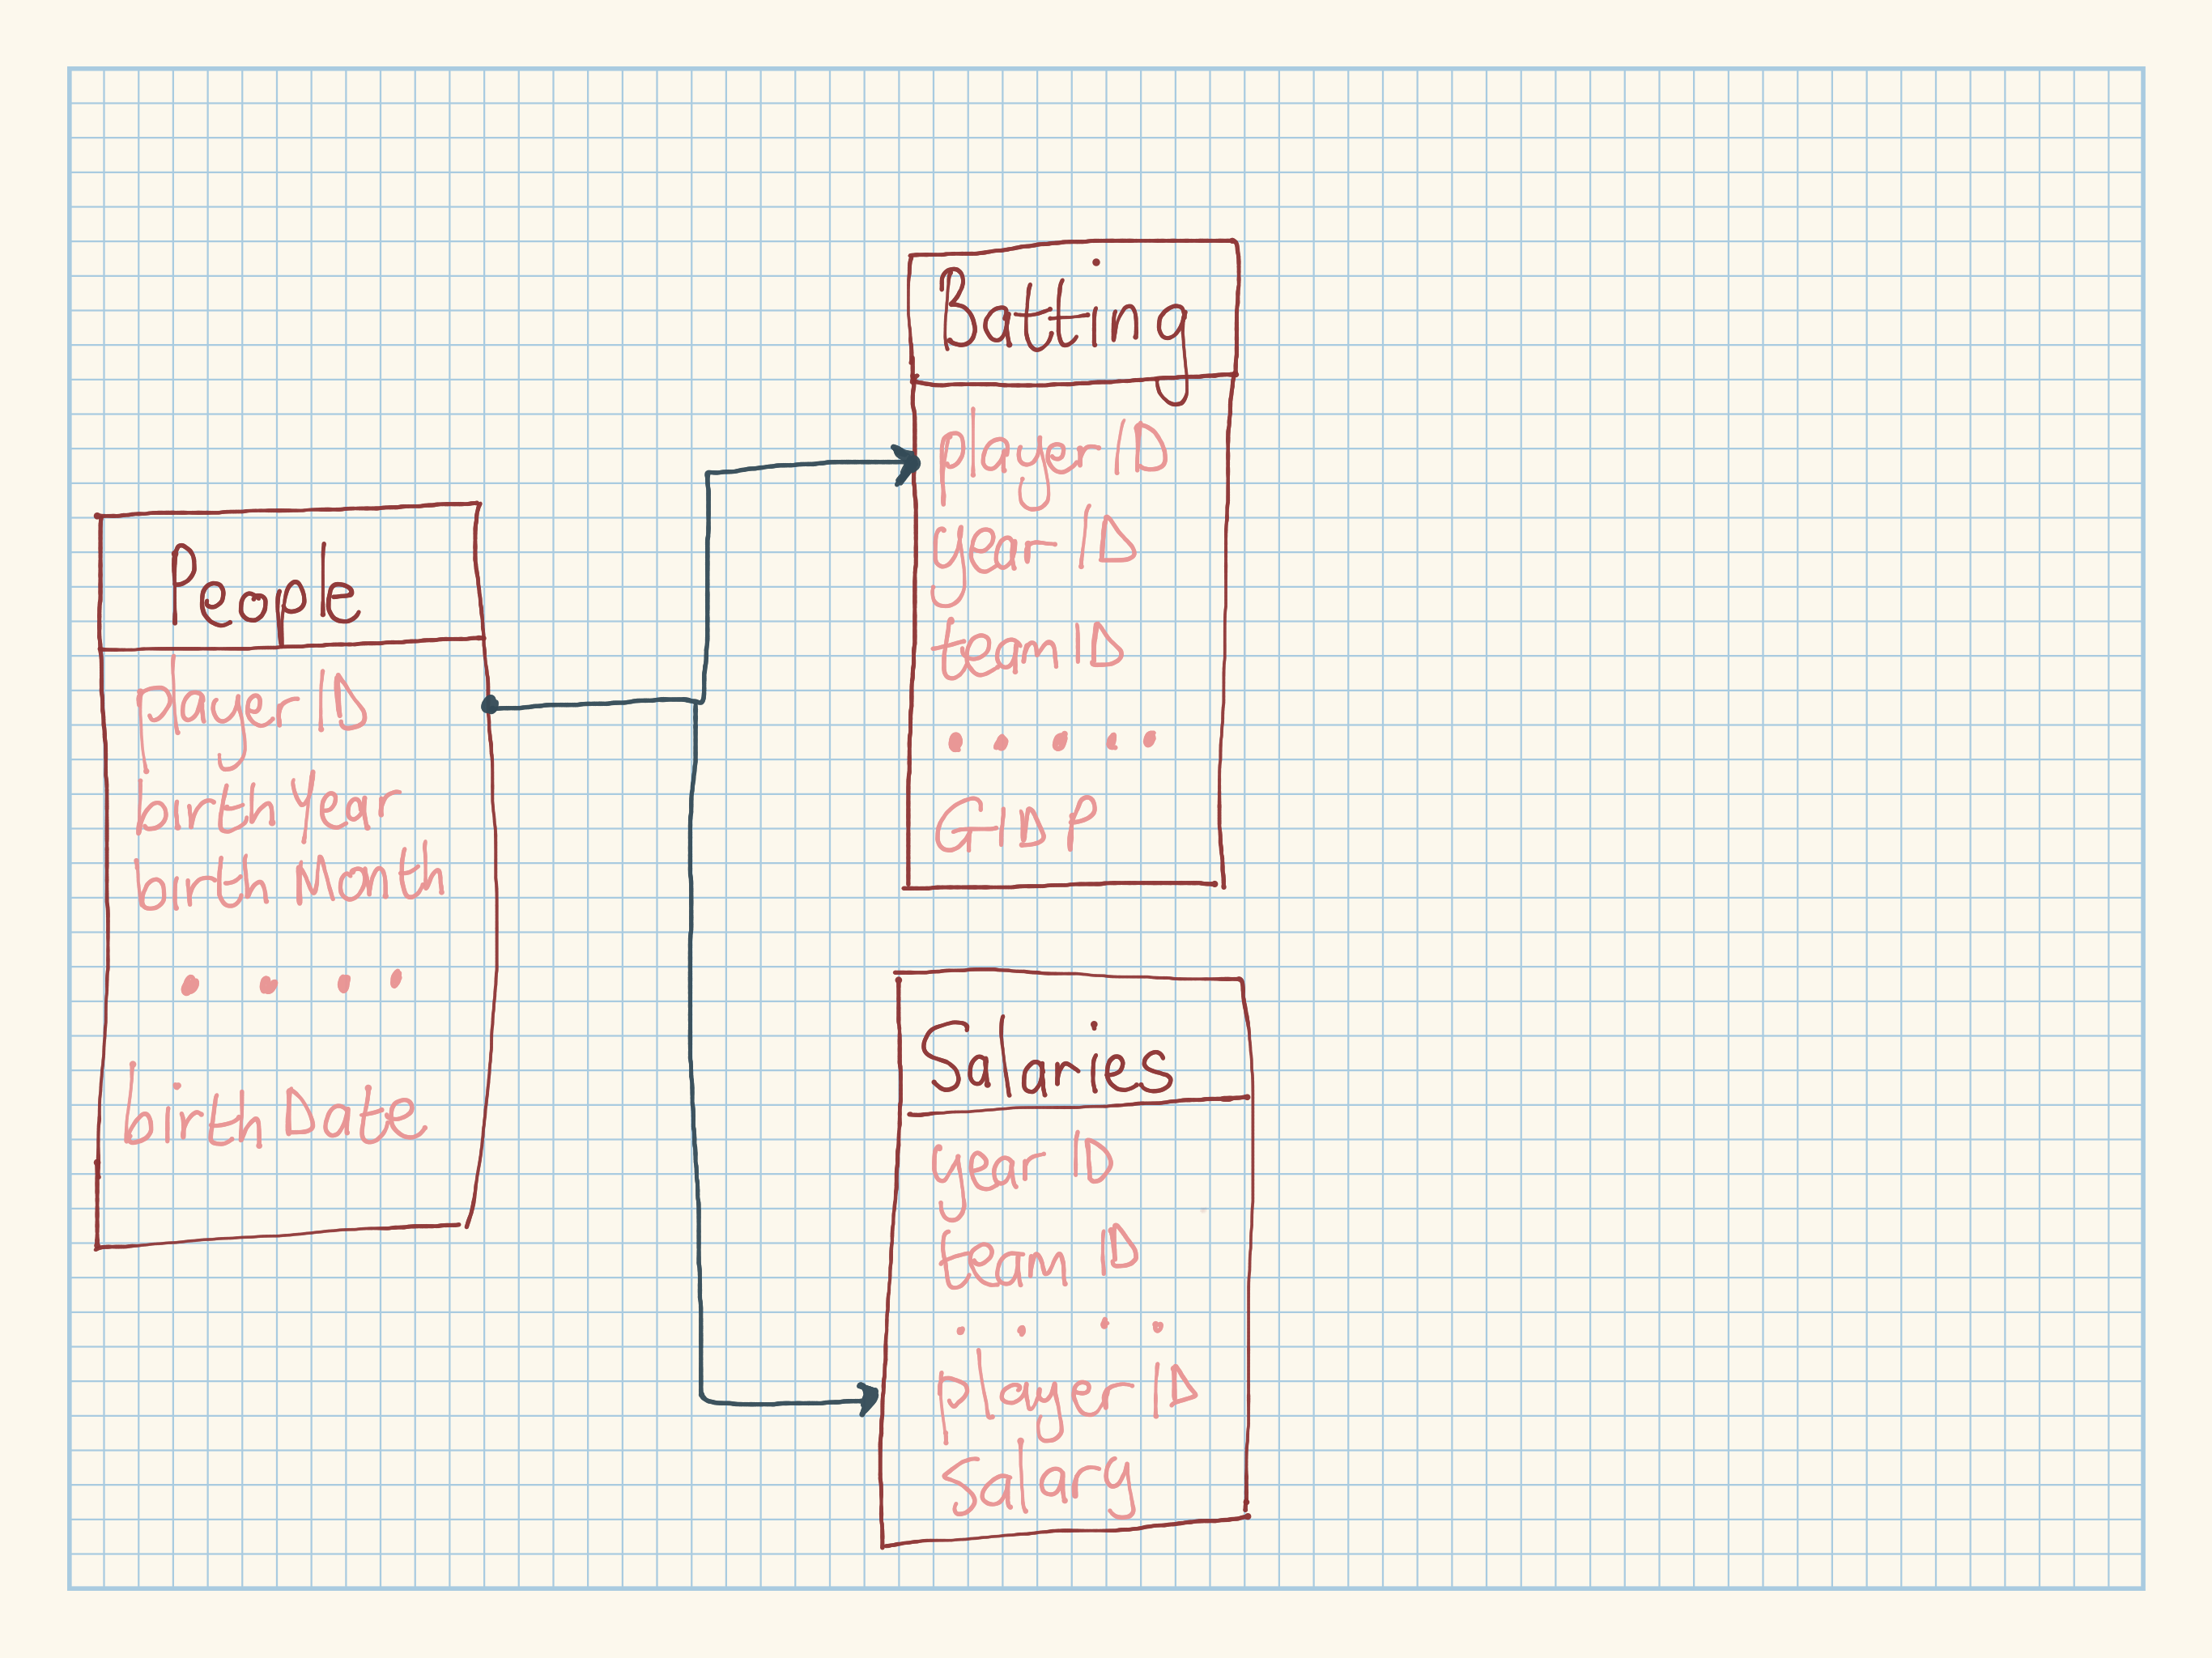 People
player ID
birth Year
birth Month
. . . .
birth Date
Batting
player ID
year ID
team ID
. . . . .
GIDP
Salaries
year ID
team ID
. . . .
player ID
Salary